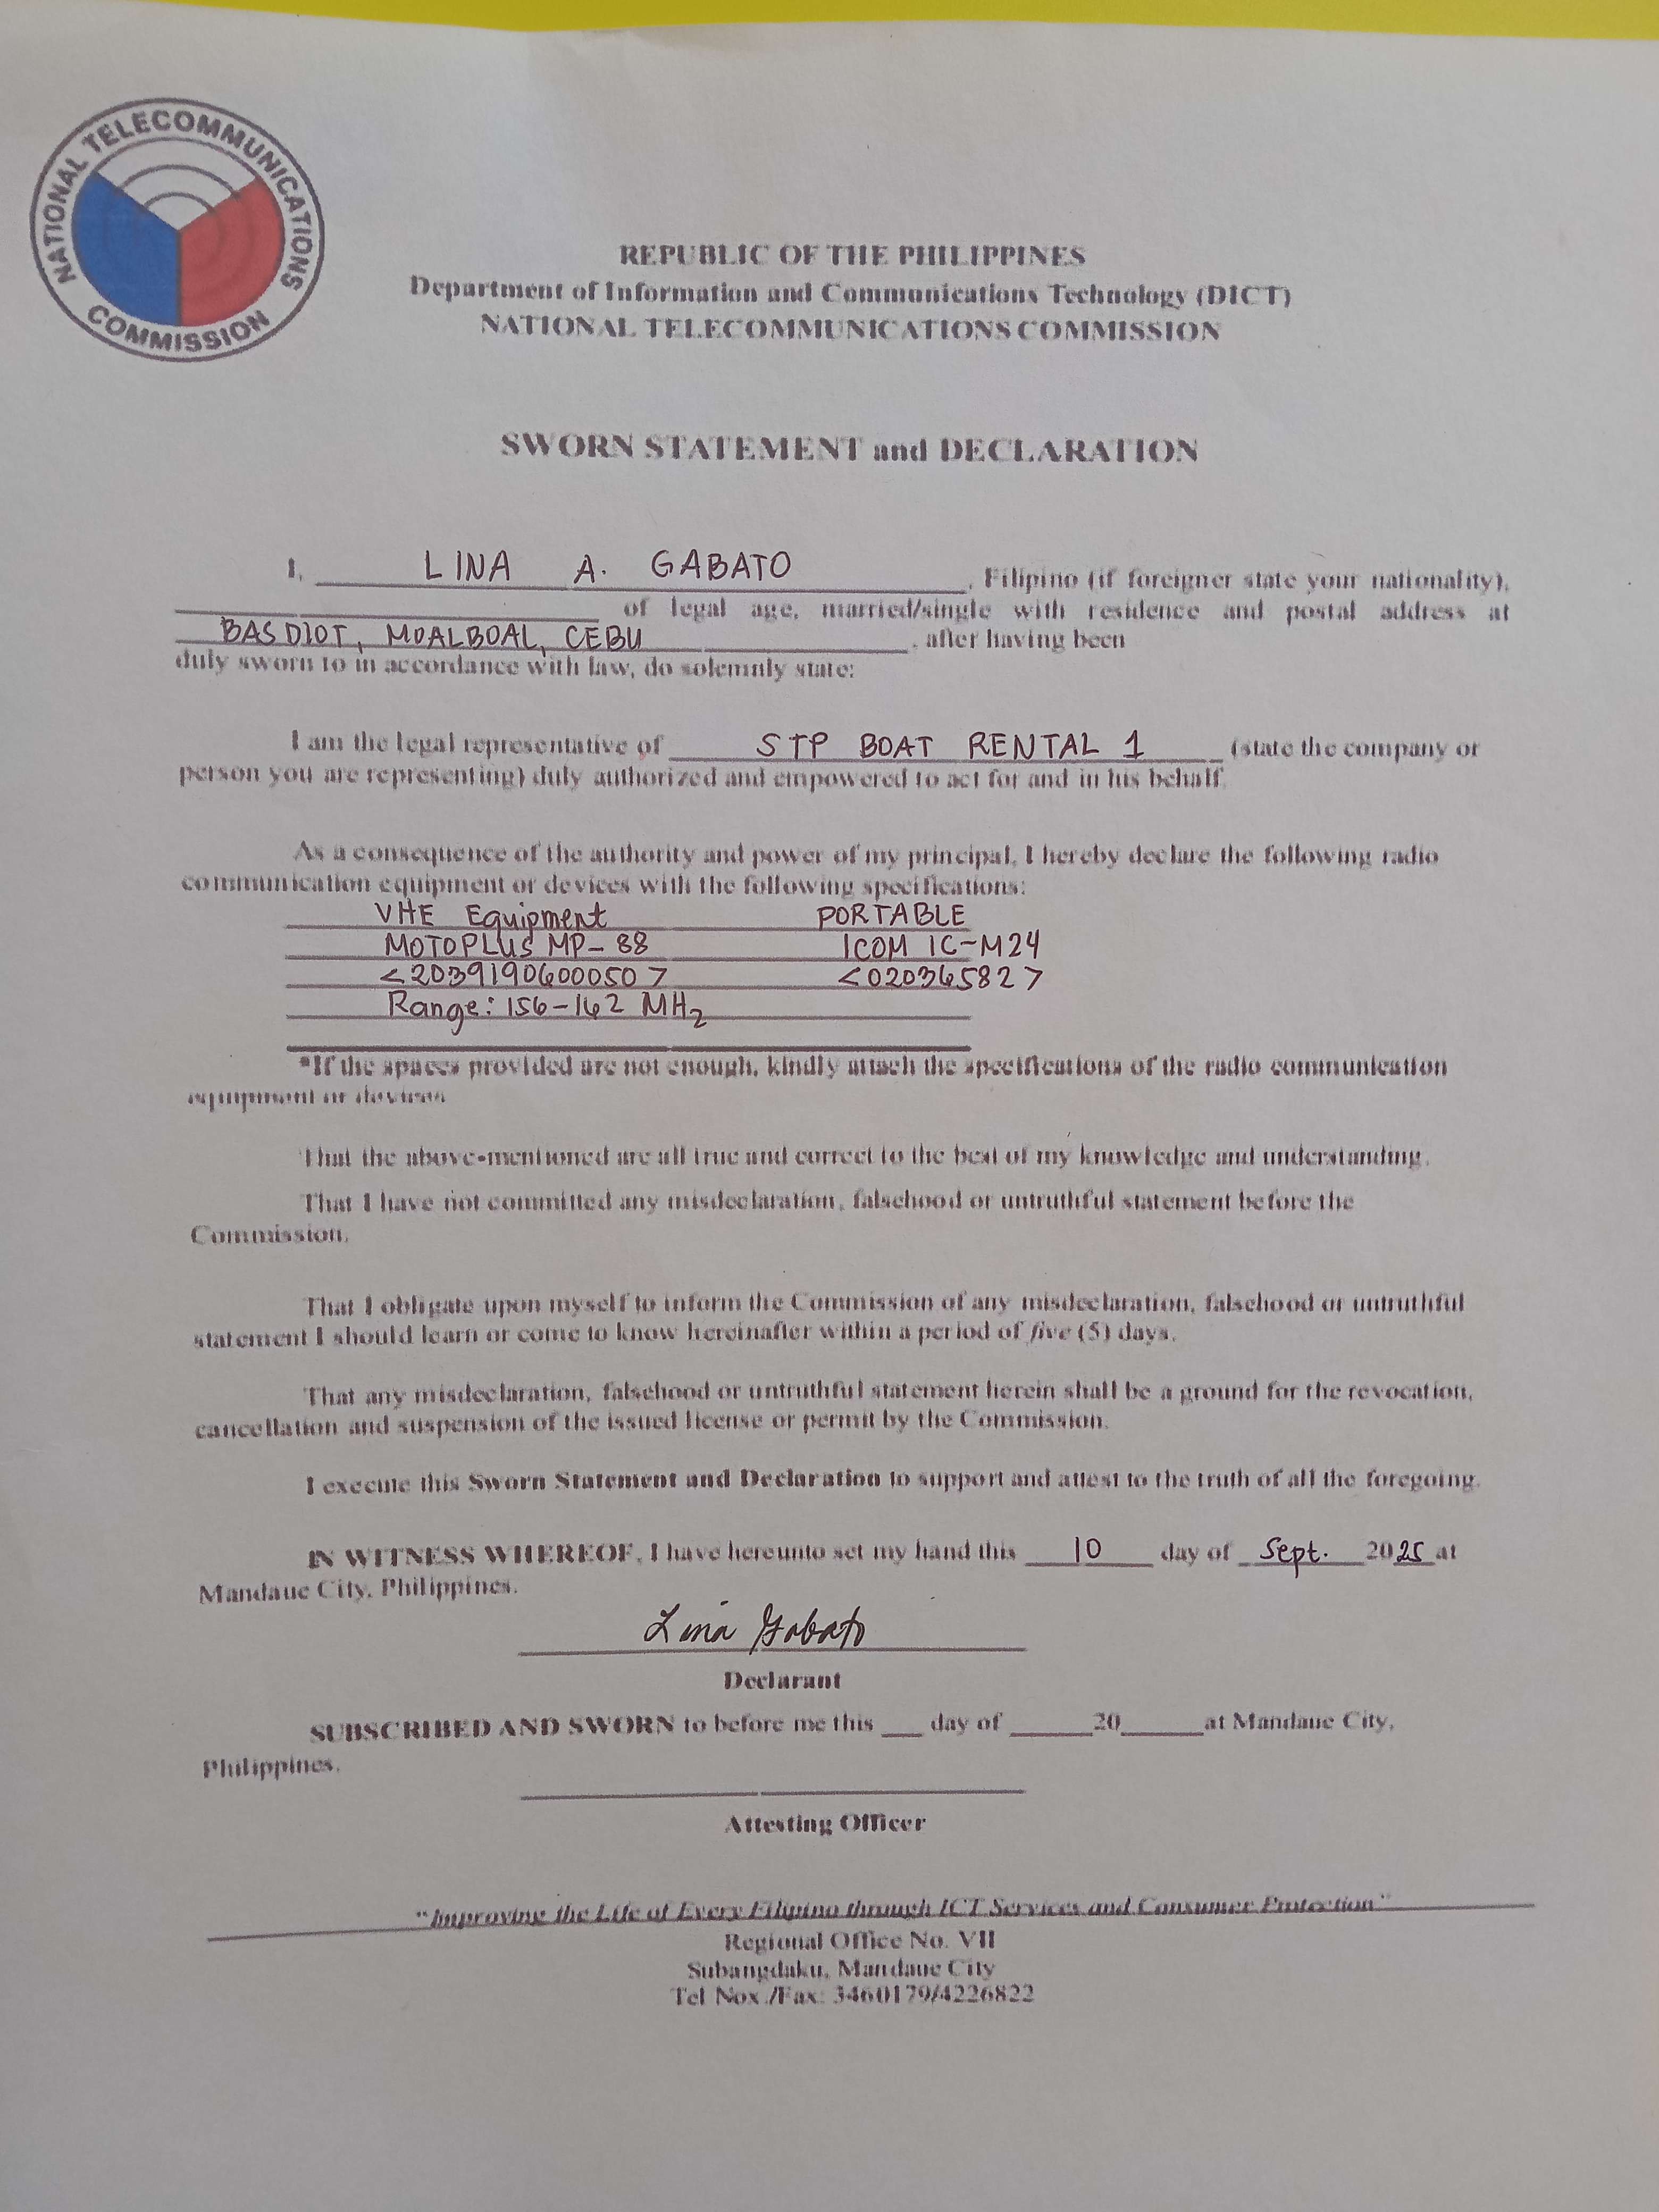 NATIONAL TELECOMMUNICATIONS COMMISSION
REPUBLIC OF THE PHILIPPINES
Department of Information and Communications Technology (DICT)
NATIONAL TELECOMMUNICATIONS COMMISSION
SWORN STATEMENT and DECLARATION
I, LINA A. GABATO, Filipino (if foreigner state your nationality),
of legal age, married/single with residence and postal address at
BASDIOT, MOALBOAL, CEBU, after having been
duly sworn to in accordance with law, do solemnly state:
I am the legal representative of STP BOAT RENTAL 1 (state the company or
person you are representing) duly authorized and empowered to act for and in his behalf.
As a consequence of the authority and power of my principal, I hereby declare the following radio
communication equipment or devices with the following specifications:
VHE Equipment PORTABLE
MOTOPLUS MP-88 ICOM IC-M24
<2039190600050> <020365827>
Range: 156-162 MHz
*If the spaces provided are not enough, kindly attach the specifications of the radio communication
equipment or devices
That the above-mentioned are all true and correct to the best of my knowledge and understanding.
That I have not committed any misdeclaration, falsehood or untruthful statement before the
Commission.
That I obligate upon myself to inform the Commission of any misdeclaration, falsehood or untruthful
statement I should learn or come to know hereinafter within a period of five (5) days.
That any misdeclaration, falsehood or untruthful statement herein shall be a ground for the revocation,
cancellation and suspension of the issued license or permit by the Commission.
I execute this Sworn Statement and Declaration to support and attest to the truth of all the foregoing.
IN WITNESS WHEREOF, I have hereunto set my hand this 10 day of Sept. 2025 at
Mandaue City, Philippines.
Lina Gabato
Declarant
SUBSCRIBED AND SWORN to before me this ___ day of ______20______at Mandaue City,
Philippines.
Attesting Officer
"Improving the Life of Every Filipino through ICT Services and Consumer Protection"
Regional Office No. VII
Subangdaku, Mandaue City
Tel Nox./Fax: 3460179/4226822